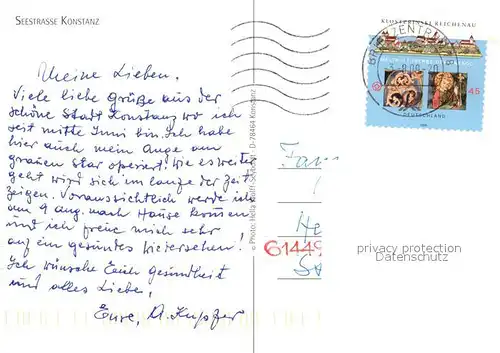 SEESTRASSE KONSTANZ
Meine Lieben.
Viele liebe Grüße aus der
schöne Stadt Konstanz wo ich
seit mitte Juni bin. Ich habe
hier auch mein Auge am
grauen Star operiert. Wie es weiter
geht wird sich im laufe der Zeit
zeigen. Voraussichtlich werde ich
am 9 Aug. nach Hause kommen
und ich freue mich sehr
auf ein gesundes Wiedersehen!
Ich wünsche Euch gesundheit
und alles Liebe.
Eure, A. Kupfer
D-78464 Konstanz
KLOSTERINSEL REICHENAU
BRIEFZENTRUM
45
DEUTSCHLAND
Fam
He
61449
privacy protection
Datenschutz